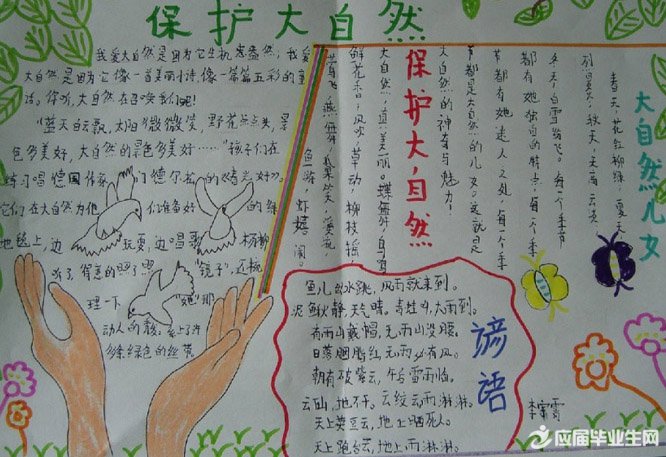 保护大自然
我爱大自然是因为它生机盎然，我爱
大自然是因为它像一首美丽小诗，像一篇篇五彩的童
话。你听，大自然在召唤我们呢！
"蓝天白云飘，太阳微微笑，野花点点头，景
色多美好，大自然的景色多美好……"孩子们在
练习唱德国作家门德尔松的《春光好》。
它们在大自然为他们准备好的绿
地毯上，边玩耍，边唱歌，杨柳
听了，弯着
"镜子"，还梳
理一下她那
动人的
多条绿色的丝
大自然儿女
春天，花红柳绿，夏天，
烈日炎炎，秋天，天高云淡，
冬天，白雪皑皑。每一个季节
都有她独自的特点，每一个季
节都有她迷人之处，每一个季
节都是大自然的儿女。这就是
大自然的神奇与魅力！
保护大自然
大自然，真美丽。蝶舞升，鸟鸣
鲜花香，风吹草动，柳枝摇
莺飞，燕舞
鱼游，虾嬉闹。
谚语
鱼儿出水跳，风雨就来到。
泥鳅静，天气晴。青蛙叫，大雨到。
有雨山戴帽，无雨山没腰。
日落胭脂红，无雨必有风。
朝有破絮云，午后雷雨临。
云交云，雨淋淋。
天上黄豆云，地上晒死人。
天上跑台云，地上雨淋淋。
应届毕业生网